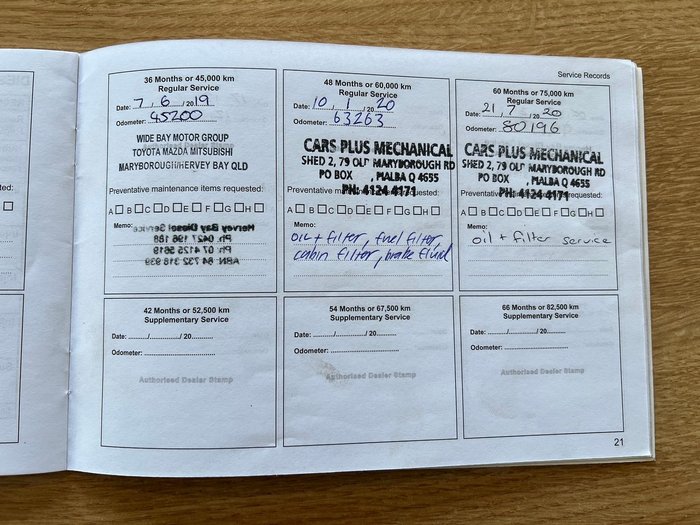 Service Records
36 Months or 45,000 km
Regular Service
Date: 7 / 6 / 2019
Odometer: 45200
Authorised Dealer Stamp
WIDE BAY MOTOR GROUP
TOYOTA MAZDA MITSUBISHI
MARYBOROUGH/HERVEY BAY QLD
Preventative maintenance items requested:
A B C D E F G H
Memo:
Hervey Bay Diesel Service
Ph 0427 196 188
Ph 07 4125 5619
ABN 64 732 318 939
48 Months or 60,000 km
Regular Service
Date: 10 / 1 / 2020
Odometer: 63263
CARS PLUS MECHANICAL
SHED 2, 79 OLD MARYBOROUGH RD
PO BOX , PIALBA Q 4655
PH: 4124 4171
Preventative maintenance items requested:
A B C D E F G H
Memo:
oil + filter, fuel filter,
cabin filter, brake fluid
60 Months or 75,000 km
Regular Service
Date: 21 / 7 / 2020
Odometer: 80196
CARS PLUS MECHANICAL
SHED 2, 79 OLD MARYBOROUGH RD
PO BOX , PIALBA Q 4655
PH: 4124 4171
requested:
A B C D E F G H
Memo:
oil + filter service
42 Months or 52,500 km
Supplementary Service
Date: ........./........./ 20.........
Odometer: .............................
Authorised Dealer Stamp
54 Months or 67,500 km
Supplementary Service
Date: ........./........./ 20.........
Odometer: .............................
Authorised Dealer Stamp
66 Months or 82,500 km
Supplementary Service
Date: ........./........./ 20.........
Odometer: .............................
Authorised Dealer Stamp
21